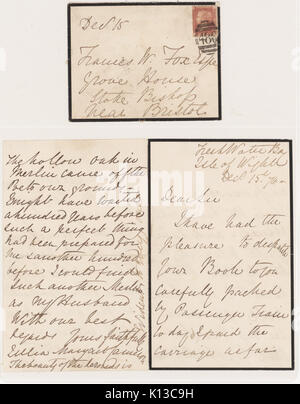 Dec 15
Francis W. Fox Esqre
Grove House
Stoke Bishop
near Bristol
The hollow oak in
Merlin cause of the
Poets own ground
I might have waited
a hundred years before
such a perfect thing
had been prepared for
me & another hundred
before I could find
Such another Merlin
as My Husband
With our best
regards Yours faithfully
Julia Margaret Cameron
The beauty of the
Fresh Water Bay
Isle of Wight
Dec 15th 74
Dear Sir
I have had the
pleasure to despatch
Your Book to you
carefully packed
by Passenger Train
to day & paid the
carriage as far
alamy
Image ID: K13C9H
www.alamy.com